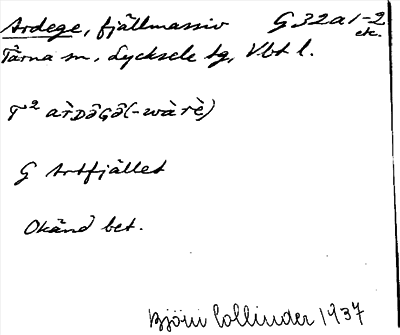 Ardege, fjällmassiv G 32a1-2 etc.
Tärna sn, Lycksele lg, Vbt l.
T² àrDəGə̂(-wàrè)
G Artfjället
Okänd bet.
Björn Collinder 1937